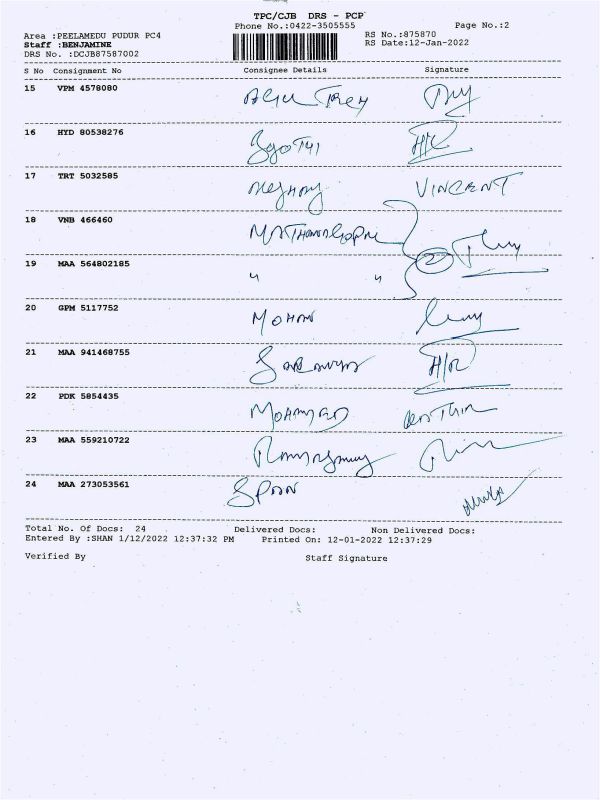 TPC/CJB DRS - PCP
Phone No.:0422-3505555 Page No.:2
Area :PEELAMEDU PUDUR PC4 RS No.:875870
Staff :BENJAMINE RS Date:12-Jan-2022
DRS No. :DCJB87587002
S No Consignment No Consignee Details Signature
15 VPM 4578080
16 HYD 80538276 H/R
17 TRT 5032585 VINCENT
18 VNB 466460
19 MAA 564802185 " " 2
20 GPM 5117752 MOHAN
21 MAA 941468755 H/R
22 PDK 5854435 MOHAMED
23 MAA 559210722
24 MAA 273053561 SPAN
Total No. Of Docs: 24 Delivered Docs: Non Delivered Docs:
Entered By :SHAN 1/12/2022 12:37:32 PM Printed On: 12-01-2022 12:37:29
Verified By Staff Signature